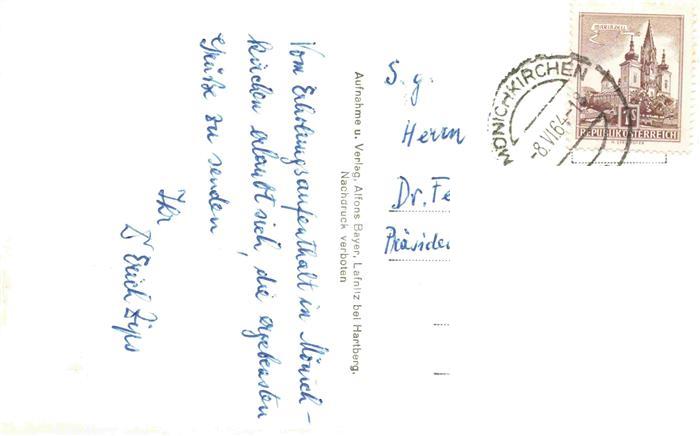 Vom Erholungsaufenthalt in Mönich-
kirchen erlaubt sich, die ergebensten
Grüße zu senden
Ihr
Dr Erich Zips
Aufnahme u. Verlag, Alfons Bayer, Lafnitz bei Hartberg.
Nachdruck verboten
S. g.
Herrn
Dr. Fe
Präside
MÖNICHKIRCHEN
-8.VI.64-1
MARIAZELL
1S
REPUBLIK ÖSTERREICH